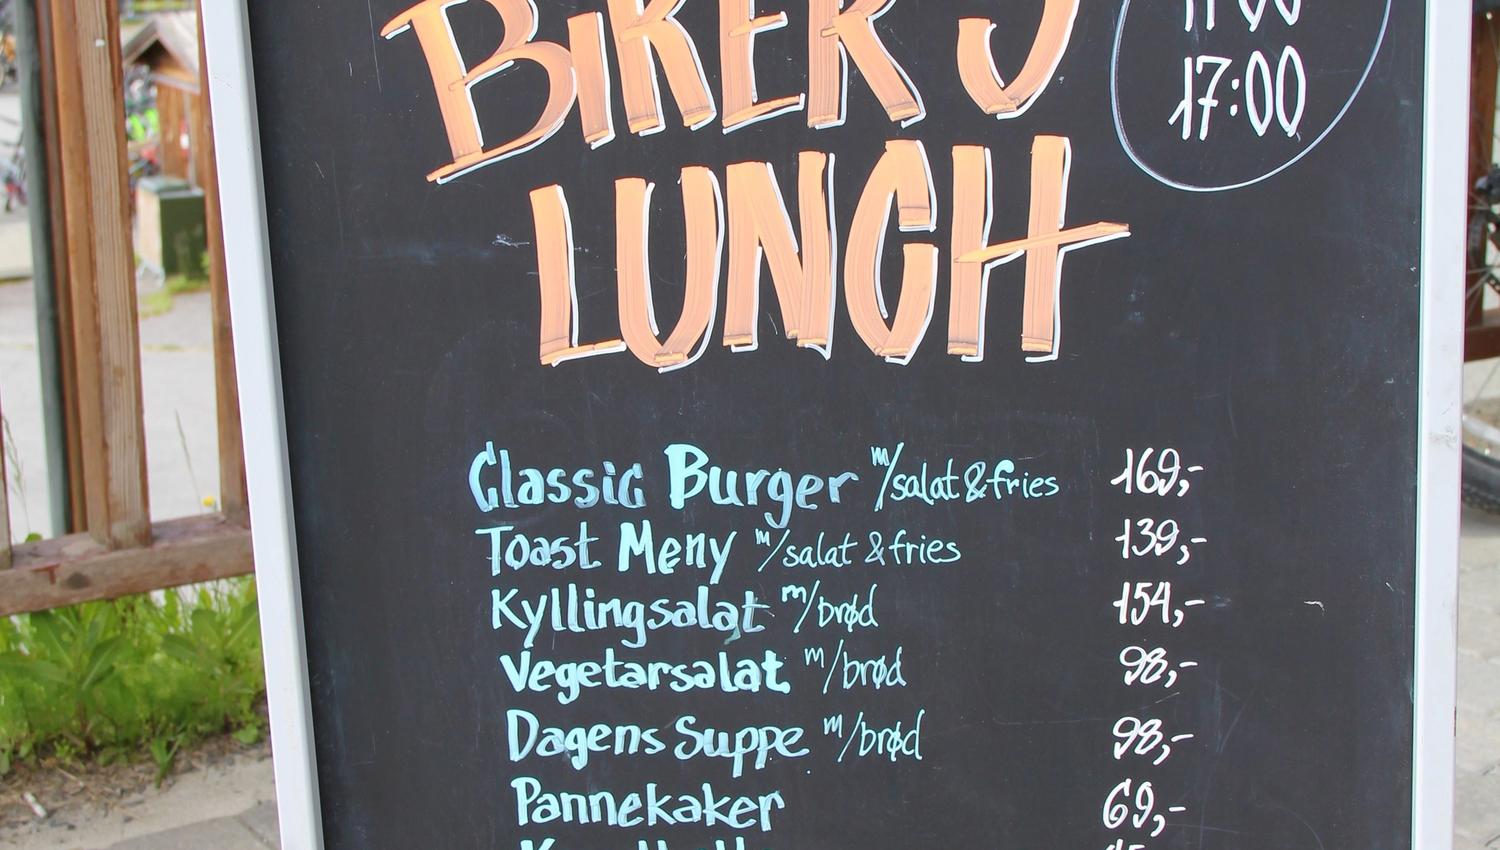 BIKER'S
17:00
LUNCH
Classic Burger m/salat & fries 169,-
Toast Meny m/salat & fries 139,-
Kyllingsalat m/brød 154,-
Vegetarsalat m/brød 98,-
Dagens Suppe m/brød 98,-
Pannekaker 69,-